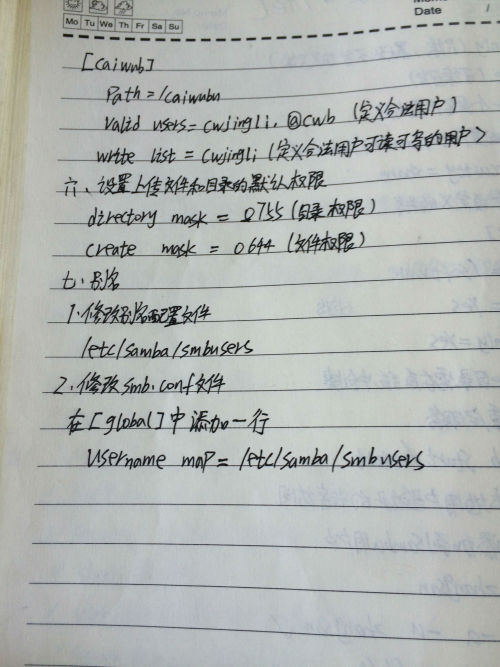 Date
Mo Tu We Th Fr Sa Su
[caiwub]
Path = /caiwubu
Valid users = cwjingli, @cwb (定义合法用户)
write list = cwjingli (定义合法用户可读可写的用户)
六、设置上传文件和目录的默认权限
directory mask = 0755 (目录权限)
create mask = 0644 (文件权限)
七、别名
1、修改别名配置文件
/etc/samba/smbusers
2、修改smb.conf文件
在[global]中添加一行
Username map = /etc/samba/smbusers